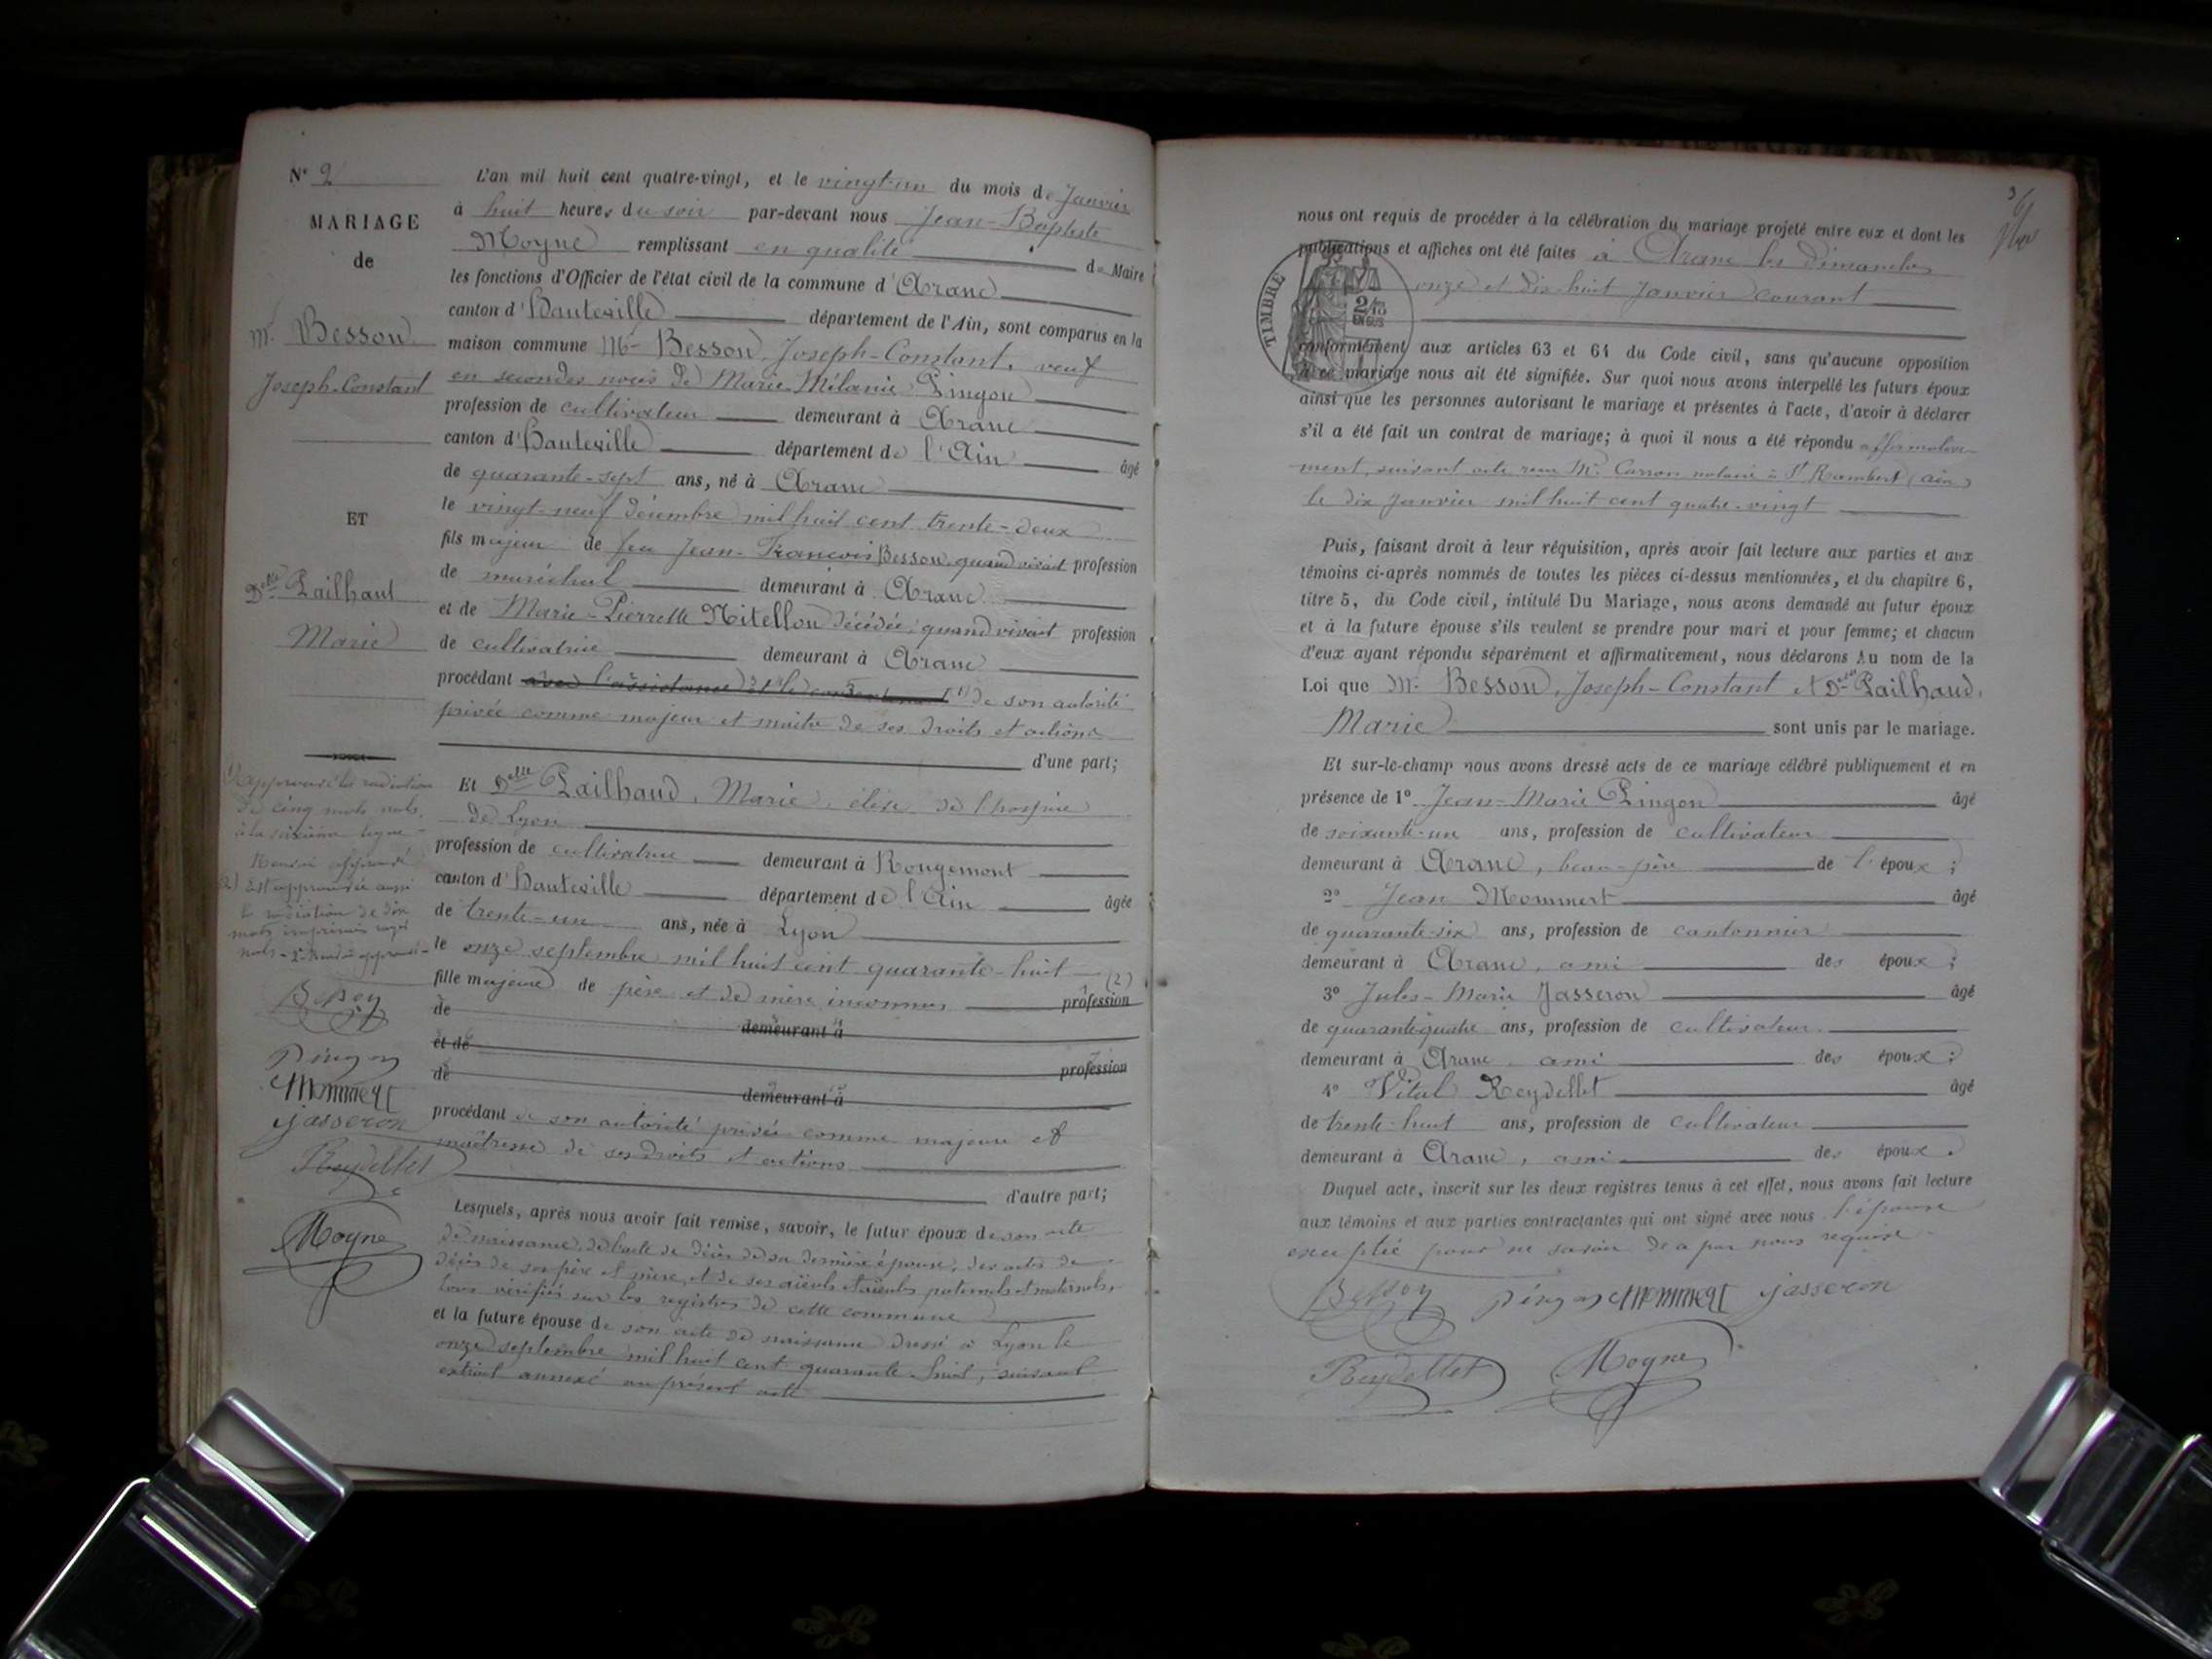 N° 2
MARIAGE
de
Mr Besson
Joseph-Constant
ET
Delle Pailhaud
Marie
(1) Approuvé la radiation
de cinq mots nuls
à la sixième ligne
Renvoi approuvé
(2) Est approuvée aussi
la radiation de dix
mots imprimés rayés
nuls - 2e Renvoi approuvé -
Besson
Pingon
Mommert
Jasseron
Reydellet
Moyne
L'an mil huit cent quatre-vingt, et le vingt-un du mois de Janvier
à huit heures du soir par-devant nous Jean-Baptiste
Moyne remplissant en qualité de Maire
les fonctions d'Officier de l'état civil de la commune d'Aranc
canton d'Hauteville département de l'Ain, sont comparus en la
maison commune Mr Besson, Joseph-Constant, veuf
en secondes noces de Marie-Mélanie Pingon
profession de cultivateur demeurant à Aranc
canton d'Hauteville département de l'Ain âgé
de quarante-sept ans, né à Aranc
le vingt-neuf décembre mil huit cent trente-deux
fils majeur de feu Jean-François Besson, quand vivait profession
de maréchal demeurant à Aranc
et de Marie-Pierrette Mitellon décédée, quand vivait profession
de cultivatrice demeurant à Aranc
procédant avec l'assistance et le consentement (1) de son autorité
privée comme majeur et maître de ses droits et actions
d'une part;
Et Delle Pailhaud, Marie, élève de l'hospice
de Lyon
profession de cultivatrice demeurant à Rougemont
canton d'Hauteville département de l'Ain âgée
de trente-un ans, née à Lyon
le onze septembre mil huit cent quarante-huit
fille majeure de père et de mère inconnus (2) profession
de demeurant à
et de profession
de demeurant à
procédant de son autorité privée comme majeure et
maîtresse de ses droits et actions
d'autre part;
Lesquels, après nous avoir fait remise, savoir, le futur époux de son acte
de naissance, de l'acte de décès de sa dernière épouse, des actes de
décès de ses père et mère, et de ses aïeuls et aïeules paternels et maternels,
tous vérifiés sur les registres de cette commune
et la future épouse de son acte de naissance dressé à Lyon le
onze septembre mil huit cent quarante-huit, suivant
extrait annexé au présent acte
3
nous ont requis de procéder à la célébration du mariage projeté entre eux et dont les
publications et affiches ont été faites à Aranc les dimanches
onze et dix-huit janvier courant
TIMBRE
2/10
EN SUS
conformément aux articles 63 et 64 du Code civil, sans qu'aucune opposition
à ce mariage nous ait été signifiée. Sur quoi nous avons interpellé les futurs époux
ainsi que les personnes autorisant le mariage et présentes à l'acte, d'avoir à déclarer
s'il a été fait un contrat de mariage; à quoi il nous a été répondu affirmative-
ment, suivant acte reçu Me Carron notaire à St Rambert (Ain)
le dix janvier mil huit cent quatre-vingt
Puis, faisant droit à leur réquisition, après avoir fait lecture aux parties et aux
témoins ci-après nommés de toutes les pièces ci-dessus mentionnées, et du chapitre 6,
titre 5, du Code civil, intitulé Du Mariage, nous avons demandé au futur époux
et à la future épouse s'ils veulent se prendre pour mari et pour femme; et chacun
d'eux ayant répondu séparément et affirmativement, nous déclarons Au nom de la
Loi que Mr Besson, Joseph-Constant et Delle Pailhaud,
Marie sont unis par le mariage.
Et sur-le-champ nous avons dressé acte de ce mariage célébré publiquement et en
présence de 1° Jean-Marie Pingon âgé
de soixante-un ans, profession de cultivateur
demeurant à Aranc, beau-père de l'époux;
2° Jean Mommert âgé
de quarante-six ans, profession de cantonnier
demeurant à Aranc, ami des époux;
3° Jules-Marie Jasseron âgé
de quarante-quatre ans, profession de cultivateur
demeurant à Aranc, ami des époux;
4° Vital Reydellet âgé
de trente-huit ans, profession de cultivateur
demeurant à Aranc, ami des époux.
Duquel acte, inscrit sur les deux registres tenus à cet effet, nous avons fait lecture
aux témoins et aux parties contractantes qui ont signé avec nous l'épouse
exceptée pour ne savoir de ce par nous requise
Besson Pingon Mommert Jasseron
Reydellet Moyne